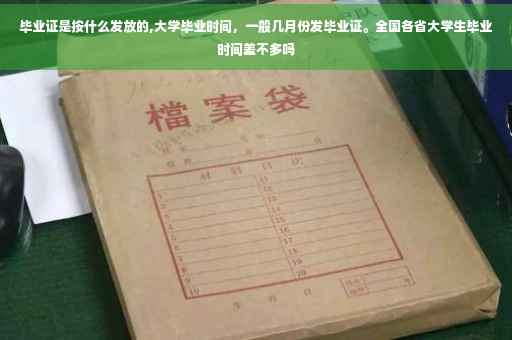 毕业证是按什么发放的,大学毕业时间，一般几月份发毕业证。全国各省大学生毕业
时间差不多吗
檔案袋
材料目次
1 11
2 12
3 13
4 14
5 15
6 16
7 17
8 18
9 19
10 20
年 月 日